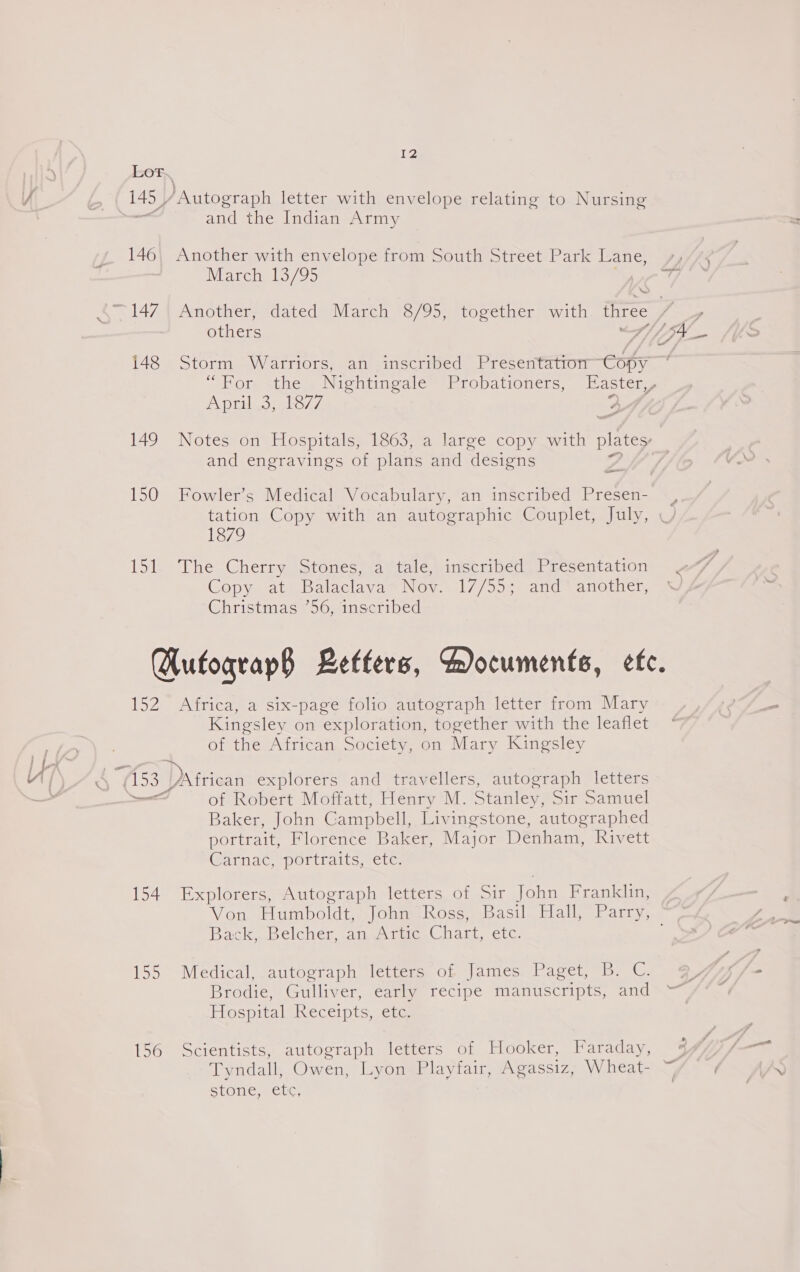 12
LOT
145 Autograph letter with envelope relating to Nursing
and the Indian Army
146 Another with envelope from South Street Park Lane,
March 13/95
147 Another, dated March 8/95, together with three
others
148 Storm Warriors, an inscribed Presentation Copy
“For the Nightingale Probationers, Easter,
April 3, 1877
149 Notes on Hospitals, 1863, a large copy with plates
and engravings of plans and designs
150 Fowler’s Medical Vocabulary, an inscribed Presen-
tation Copy with an autographic Couplet, July,
1879
151 The Cherry Stones, a tale, inscribed Presentation
Copy at Balaclava Nov. 17/55; and another,
Christmas ’56, inscribed
Autograph Letters, Documents, etc.
152 Africa, a six-page folio autograph letter from Mary
Kingsley on exploration, together with the leaflet
of the African Society, on Mary Kingsley
153 African explorers and travellers, autograph letters
of Robert Moffatt, Henry M. Stanley, Sir Samuel
Baker, John Campbell, Livingstone, autographed
portrait, Florence Baker, Major Denham, Rivett
Carnac, portraits, etc.
154 Explorers, Autograph letters of Sir John Franklin,
Von Humboldt, John Ross, Basil Hall, Parry,
Back, Belcher, an Artic Chart, etc.
155 Medical, autograph letters of James Paget, B. C.
Brodie, Gulliver, early recipe manuscripts, and
Hospital Receipts, etc.
156 Scientists, autograph letters of Hooker, Faraday,
Tyndall, Owen, Lyon Playfair, Agassiz, Wheat-
stone, etc.